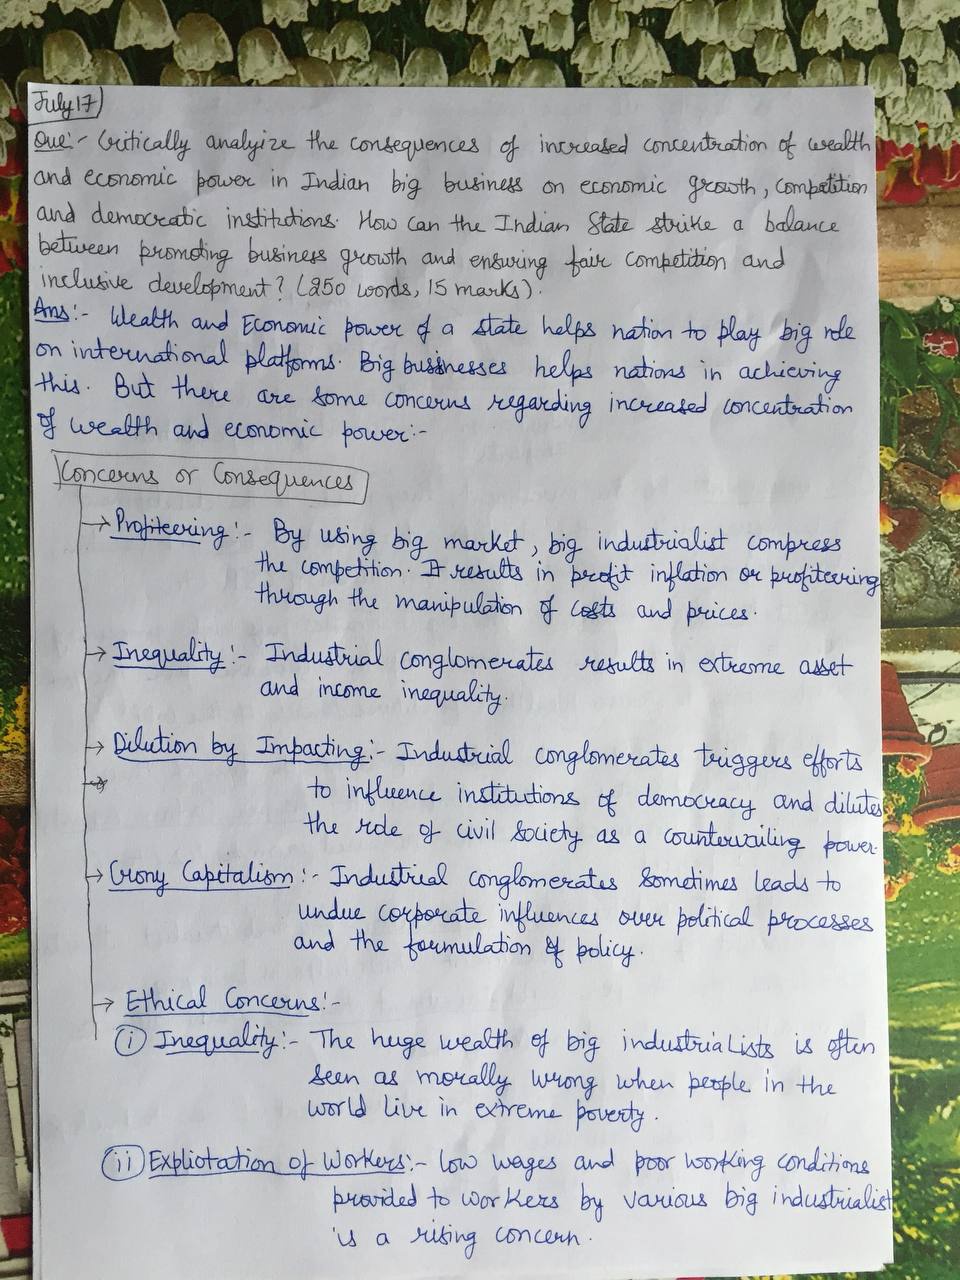 July 17
Que:- Critically analyize the consequences of increased concentration of wealth
and economic power in Indian big business on economic growth, competition
and democratic institutions. How can the Indian State strike a balance
between promoting business growth and ensuring fair competition and
inclusive development? (250 words, 15 marks).
Ans:- Wealth and Economic power of a state helps nation to play big role
on international platforms. Big businesses helps nations in achieving
this. But there are some concerns regarding increased concentration
of wealth and economic power:-
Concerns or Consequences
→ Profiteering:- By using big market, big industrialist compress
the competition. It results in profit inflation or profiteering
through the manipulation of costs and prices.
→ Inequality:- Industrial conglomerates results in extreme asset
and income inequality.
→ Dilution by Impacting:- Industrial conglomerates triggers efforts
to influence institutions of democracy and dilutes
the role of civil society as a countervailing power.
→ Crony Capitalism:- Industrial conglomerates sometimes leads to
undue corporate influences over political processes
and the formulation of policy.
→ Ethical Concerns:-
(i) Inequality:- The huge wealth of big industriaLists is often
seen as morally wrong when people in the
world live in extreme poverty.
(ii) Expliotation of Workers:- low wages and poor working conditions
provided to workers by various big industrialist
is a rising concern.